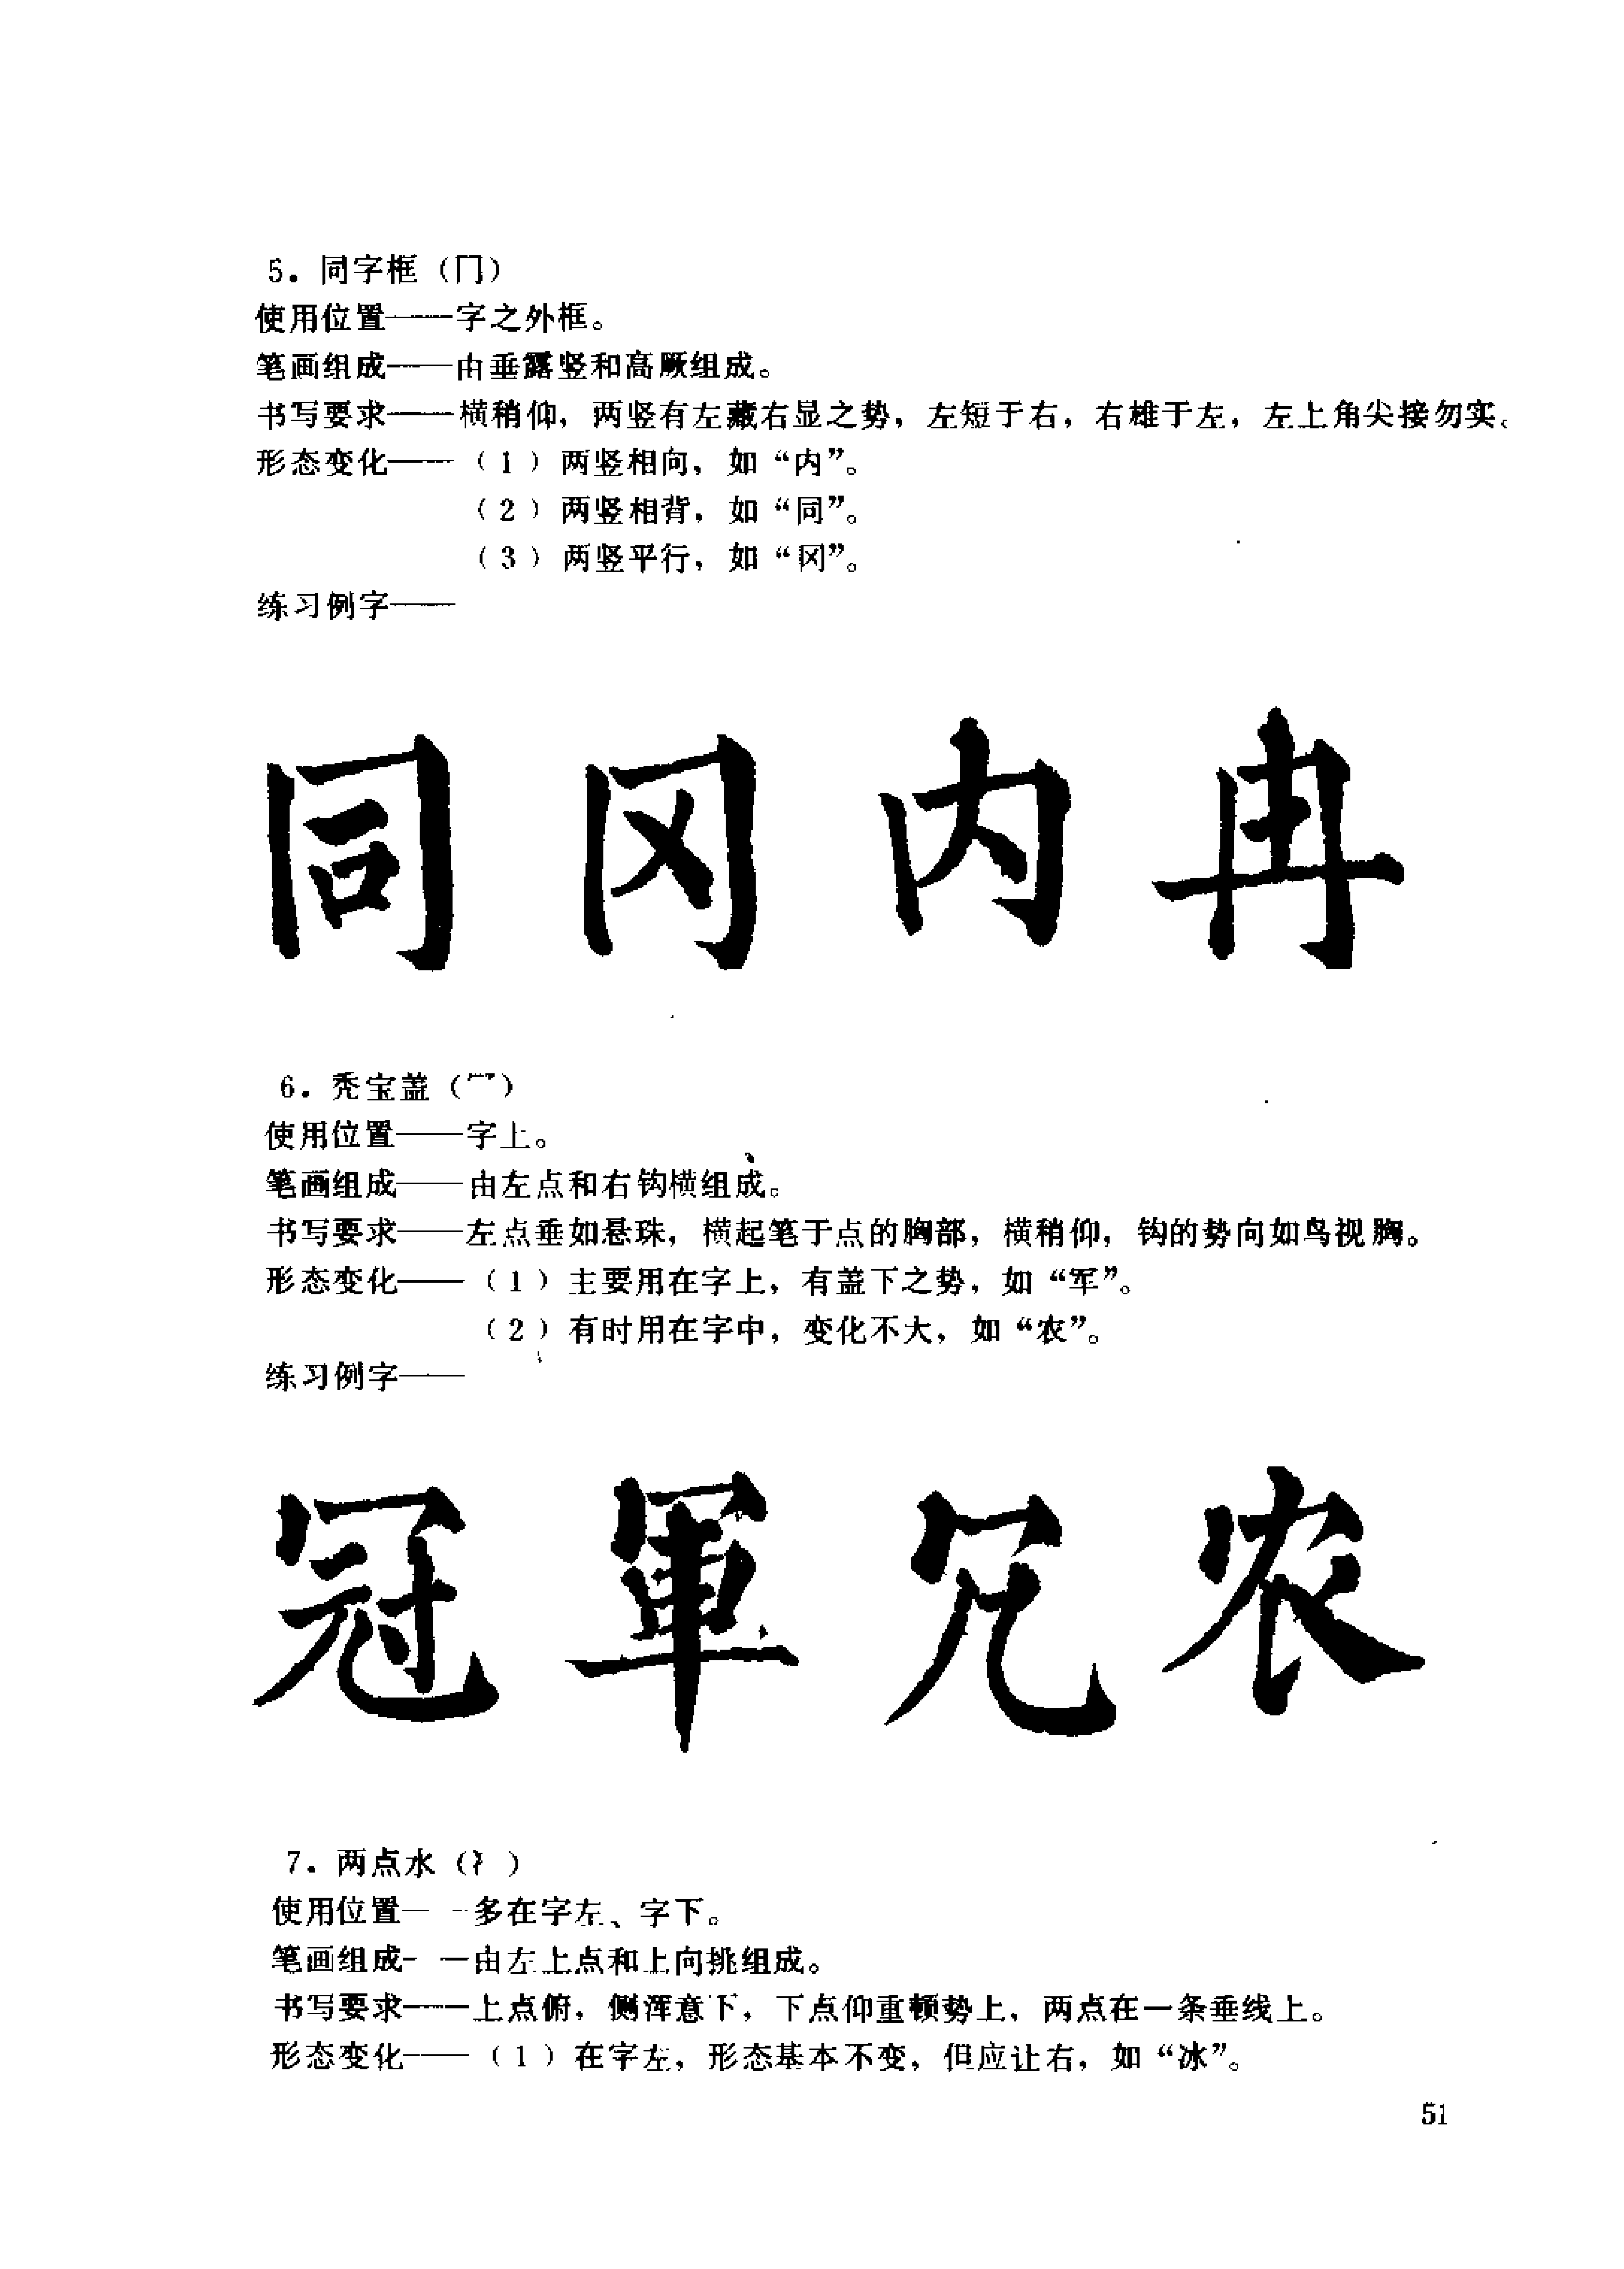 5．同字框（冂）
使用位置——字之外框。
笔画组成——由垂露竖和高厥组成。
书写要求——横稍仰，两竖有左藏右显之势，左短于右，右雄于左，左上角尖接勿实。
形态变化——（1）两竖相向，如“内”。
（2）两竖相背，如“同”。
（3）两竖平行，如“冈”。
练习例字——
同 冈 内 冉
6．秃宝盖（冖）
使用位置——字上。
笔画组成——由左点和右钩横组成。
书写要求——左点垂如悬珠，横起笔于点的胸部，横稍仰，钩的势向如鸟视胸。
形态变化——（1）主要用在字上，有盖下之势，如“军”。
（2）有时用在字中，变化不大，如“农”。
练习例字——
冠 軍 冗 农
7．两点水（冫）
使用位置——多在字左、字下。
笔画组成——由左上点和上向挑组成。
书写要求——上点俯，侧浑意下，下点仰重顿势上，两点在一条垂线上。
形态变化——（1）在字左，形态基本不变，但应让右，如“冰”。
51